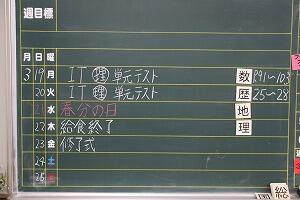 週目標
月 日 曜
3 19 月 IT 理 単元テスト 数 P.91〜103
20 火 IT 理 単元テスト 歴 25〜28
21 水 春分の日 地
22 木 給食終了 理
23 金 修了式
24 土
25 日